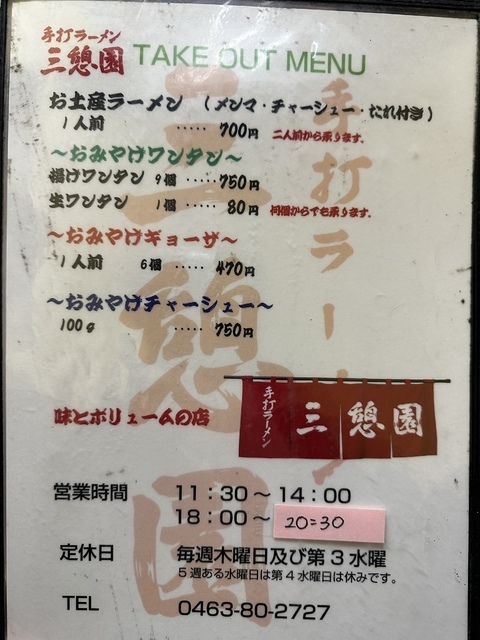 手打ラーメン
三憩園 TAKE OUT MENU
お土産ラーメン （メンマ・チャーシュー・たれ付き）
1人前 ····· 700円 二人前から承ります。
〜おみやけワンタン〜
揚げワンタン 9個 ·····750円
生ワンタン 1個 ····· 80円 何個からでも承ります。
〜おみやけギョーザ〜
1人前 6個 ····· 470円
〜おみやけチャーシュー〜
100g ····· 750円
味とボリュームの店
手打ラーメン
三憩園
営業時間 11：30〜14：00
18：00〜 20：30
定休日 毎週木曜日及び第3水曜
5週ある水曜日は第4水曜日は休みです。
TEL 0463-80-2727
手打ラーメン
三憩園